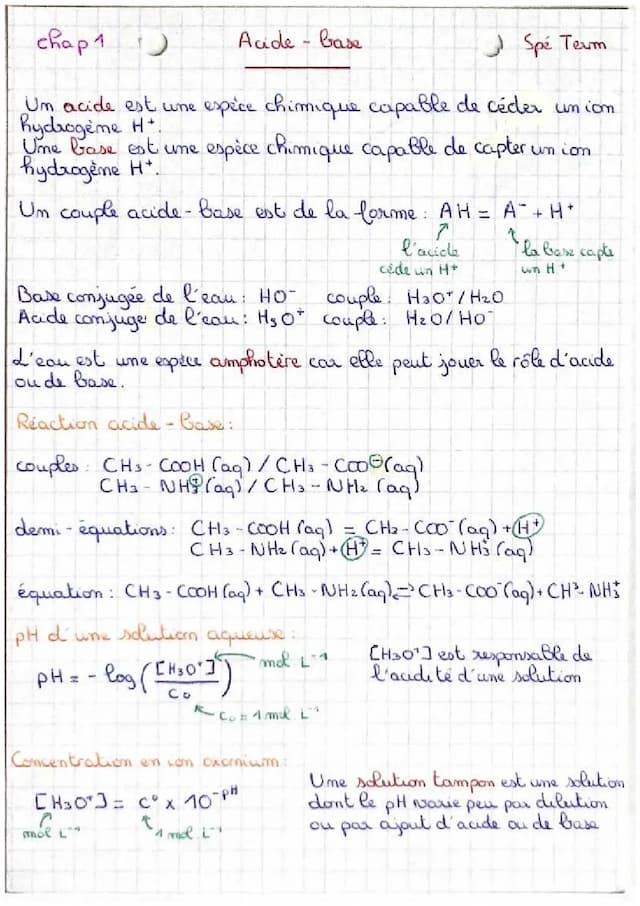 Chap 1 Acide - base Spé Term
Un acide est une espèce chimique capable de céder un ion
hydrogène H⁺.
Une base est une espèce chimique capable de capter un ion
hydrogène H⁺.
Un couple acide - base est de la forme : AH = A⁻ + H⁺
l'acide la base capte
cède un H⁺ un H⁺
Base conjugée de l'eau : HO⁻ couple : H₃O⁺ / H₂O
Acide conjugé de l'eau : H₃O⁺ couple : H₂O / HO⁻
L'eau est une espèce amphotère car elle peut jouer le rôle d'acide
ou de base.
Réaction acide - base :
couples : CH₃ - COOH (aq) / CH₃ - COO⁻ (aq)
CH₃ - NH₃⁺ (aq) / CH₃ - NH₂ (aq)
demi - équations : CH₃ - COOH (aq) = CH₃ - COO⁻ (aq) + H⁺
CH₃ - NH₂ (aq) + H⁺ = CH₃ - NH₃⁺ (aq)
équation : CH₃ - COOH (aq) + CH₃ - NH₂ (aq) ⇌ CH₃ - COO⁻ (aq) + CH³ - NH₃⁺
pH d'une solution aqueuse :
pH = - log ( [H₃O⁺] / C₀ ) mol L⁻¹
C₀ = 1 mol L⁻¹
[H₃O⁺] est responsable de
l'acidité d'une solution
Concentration en ion oxonium :
[H₃O⁺] = C° × 10⁻ᵖᴴ
mol L⁻¹ 1 mol L⁻¹
Une solution tampon est une solution
dont le pH varie peu par dilution
ou par ajout d'acide ou de base